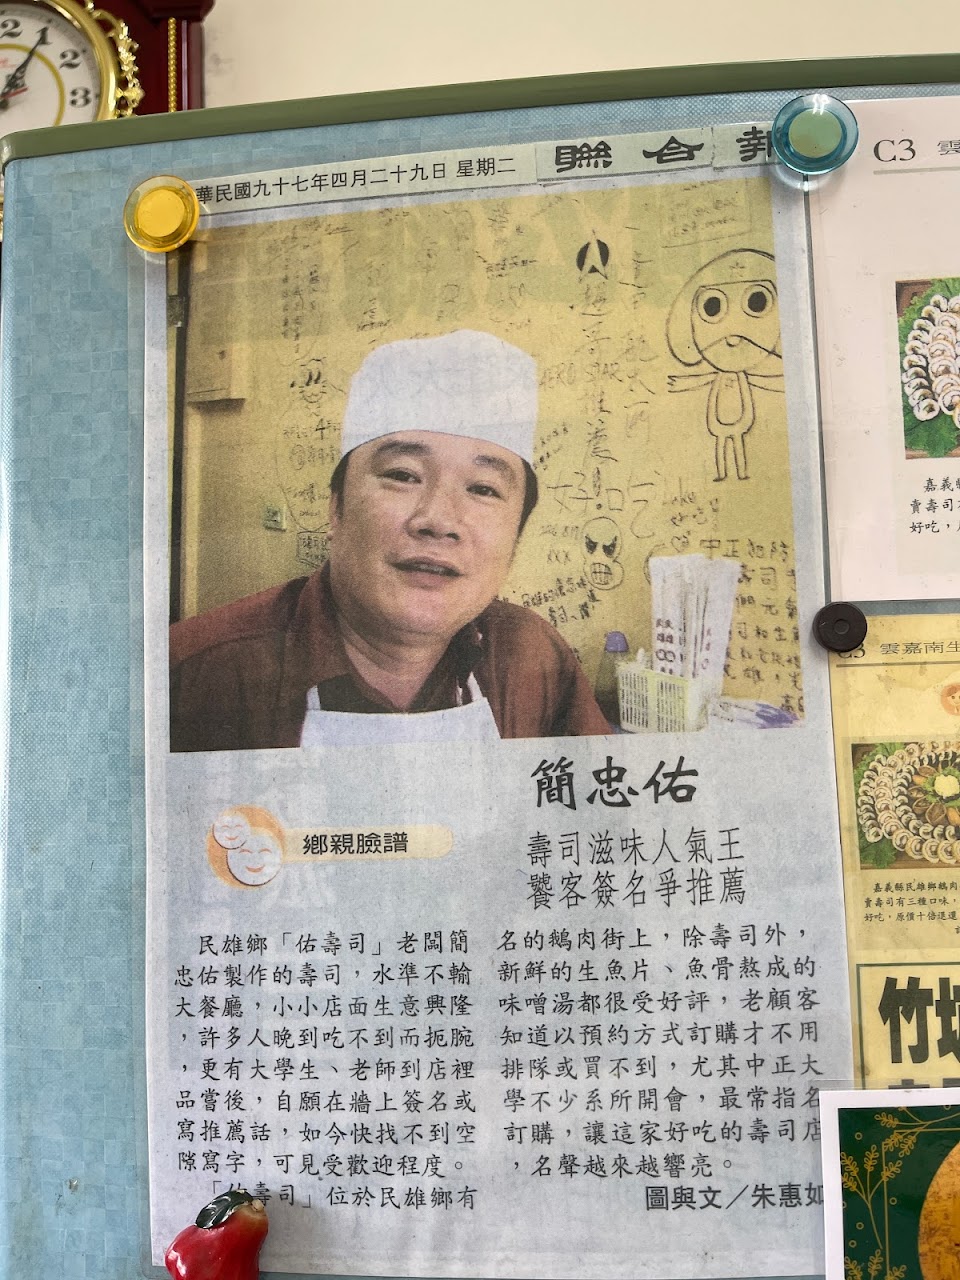 華民國九十七年四月二十九日 星期二
聯合報
簡忠佑
鄉親臉譜
壽司滋味人氣王
饕客簽名爭推薦
民雄鄉「佑壽司」老闆簡
忠佑製作的壽司，水準不輸
大餐廳，小小店面生意興隆
，許多人晚到吃不到而扼腕
，更有大學生、老師到店裡
品嘗後，自願在牆上簽名或
寫推薦話，如今快找不到空
隙寫字，可見受歡迎程度。
「佑壽司」位於民雄鄉有
名的鵝肉街上，除壽司外，
新鮮的生魚片、魚骨熬成的
味噌湯都很受好評，老顧客
知道以預約方式訂購才不用
排隊或買不到，尤其中正大
學不少系所開會，最常指名
訂購，讓這家好吃的壽司店
，名聲越來越響亮。
圖與文／朱惠如
好吃
C3 雲
嘉義縣
賣壽司
好吃，
C3 雲嘉南生
嘉義縣民雄鄉鵝肉
賣壽司有三種口味，
好吃，原價十倍退還
竹
12
1
2
3